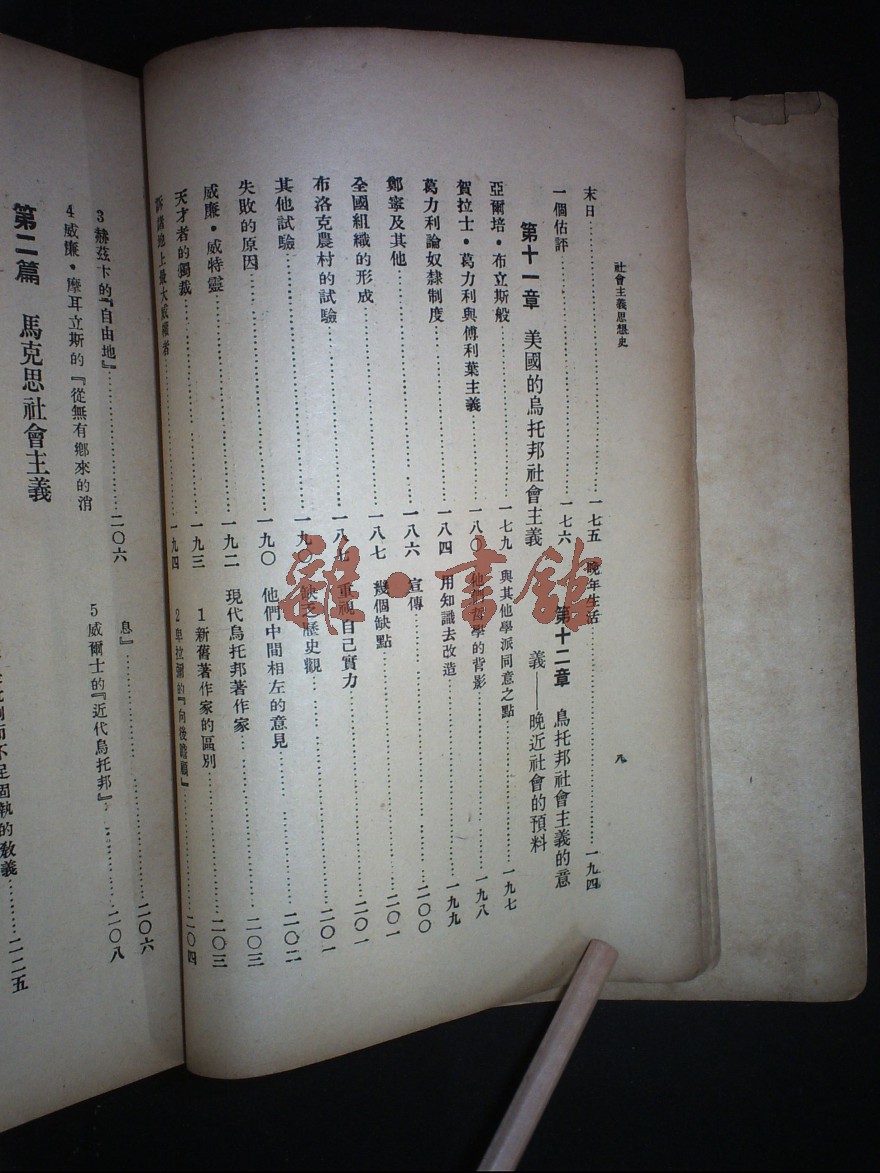 社會主義思想史
八
末日……一七五
一個估評……一七六
第十一章 美國的烏托邦社會主義
亞爾培·布立斯般……一七九
賀拉士·葛力利與傅利葉主義……一八〇
葛力利論奴隸制度……一八四
鄭寧及其他……一八六
全國組織的形成……一八七
布洛克農村的試驗……一八七
其他試驗……一九〇
失敗的原因……一九〇
威廉·威特靈……一九二
天才者的獨裁……一九三
地上最大……者……一九四
晚年生活……一九四
第十二章 烏托邦社會主義的意
義——晚近社會的預料
與其他學派同意之點……一九七
他們哲學的背影……一九八
用知識去改造……一九九
宣傳……二〇〇
幾個缺點……二〇一
重視自己實力……二〇一
缺乏歷史觀……二〇一
他們中間相左的意見……二〇二
現代烏托邦著作家……二〇三
1 新舊著作家的區別……二〇三
2 卑拉彌的『向後瞻顧』……二〇四
3 赫茲卞的『自由地』……二〇六
4 威廉·摩耳立斯的『從無有鄉來的消
息』……二〇六
5 威爾士的『近代烏托邦』……二〇八
第二篇 馬克思社會主義
而不足固執的教義……二二五
雜·書館